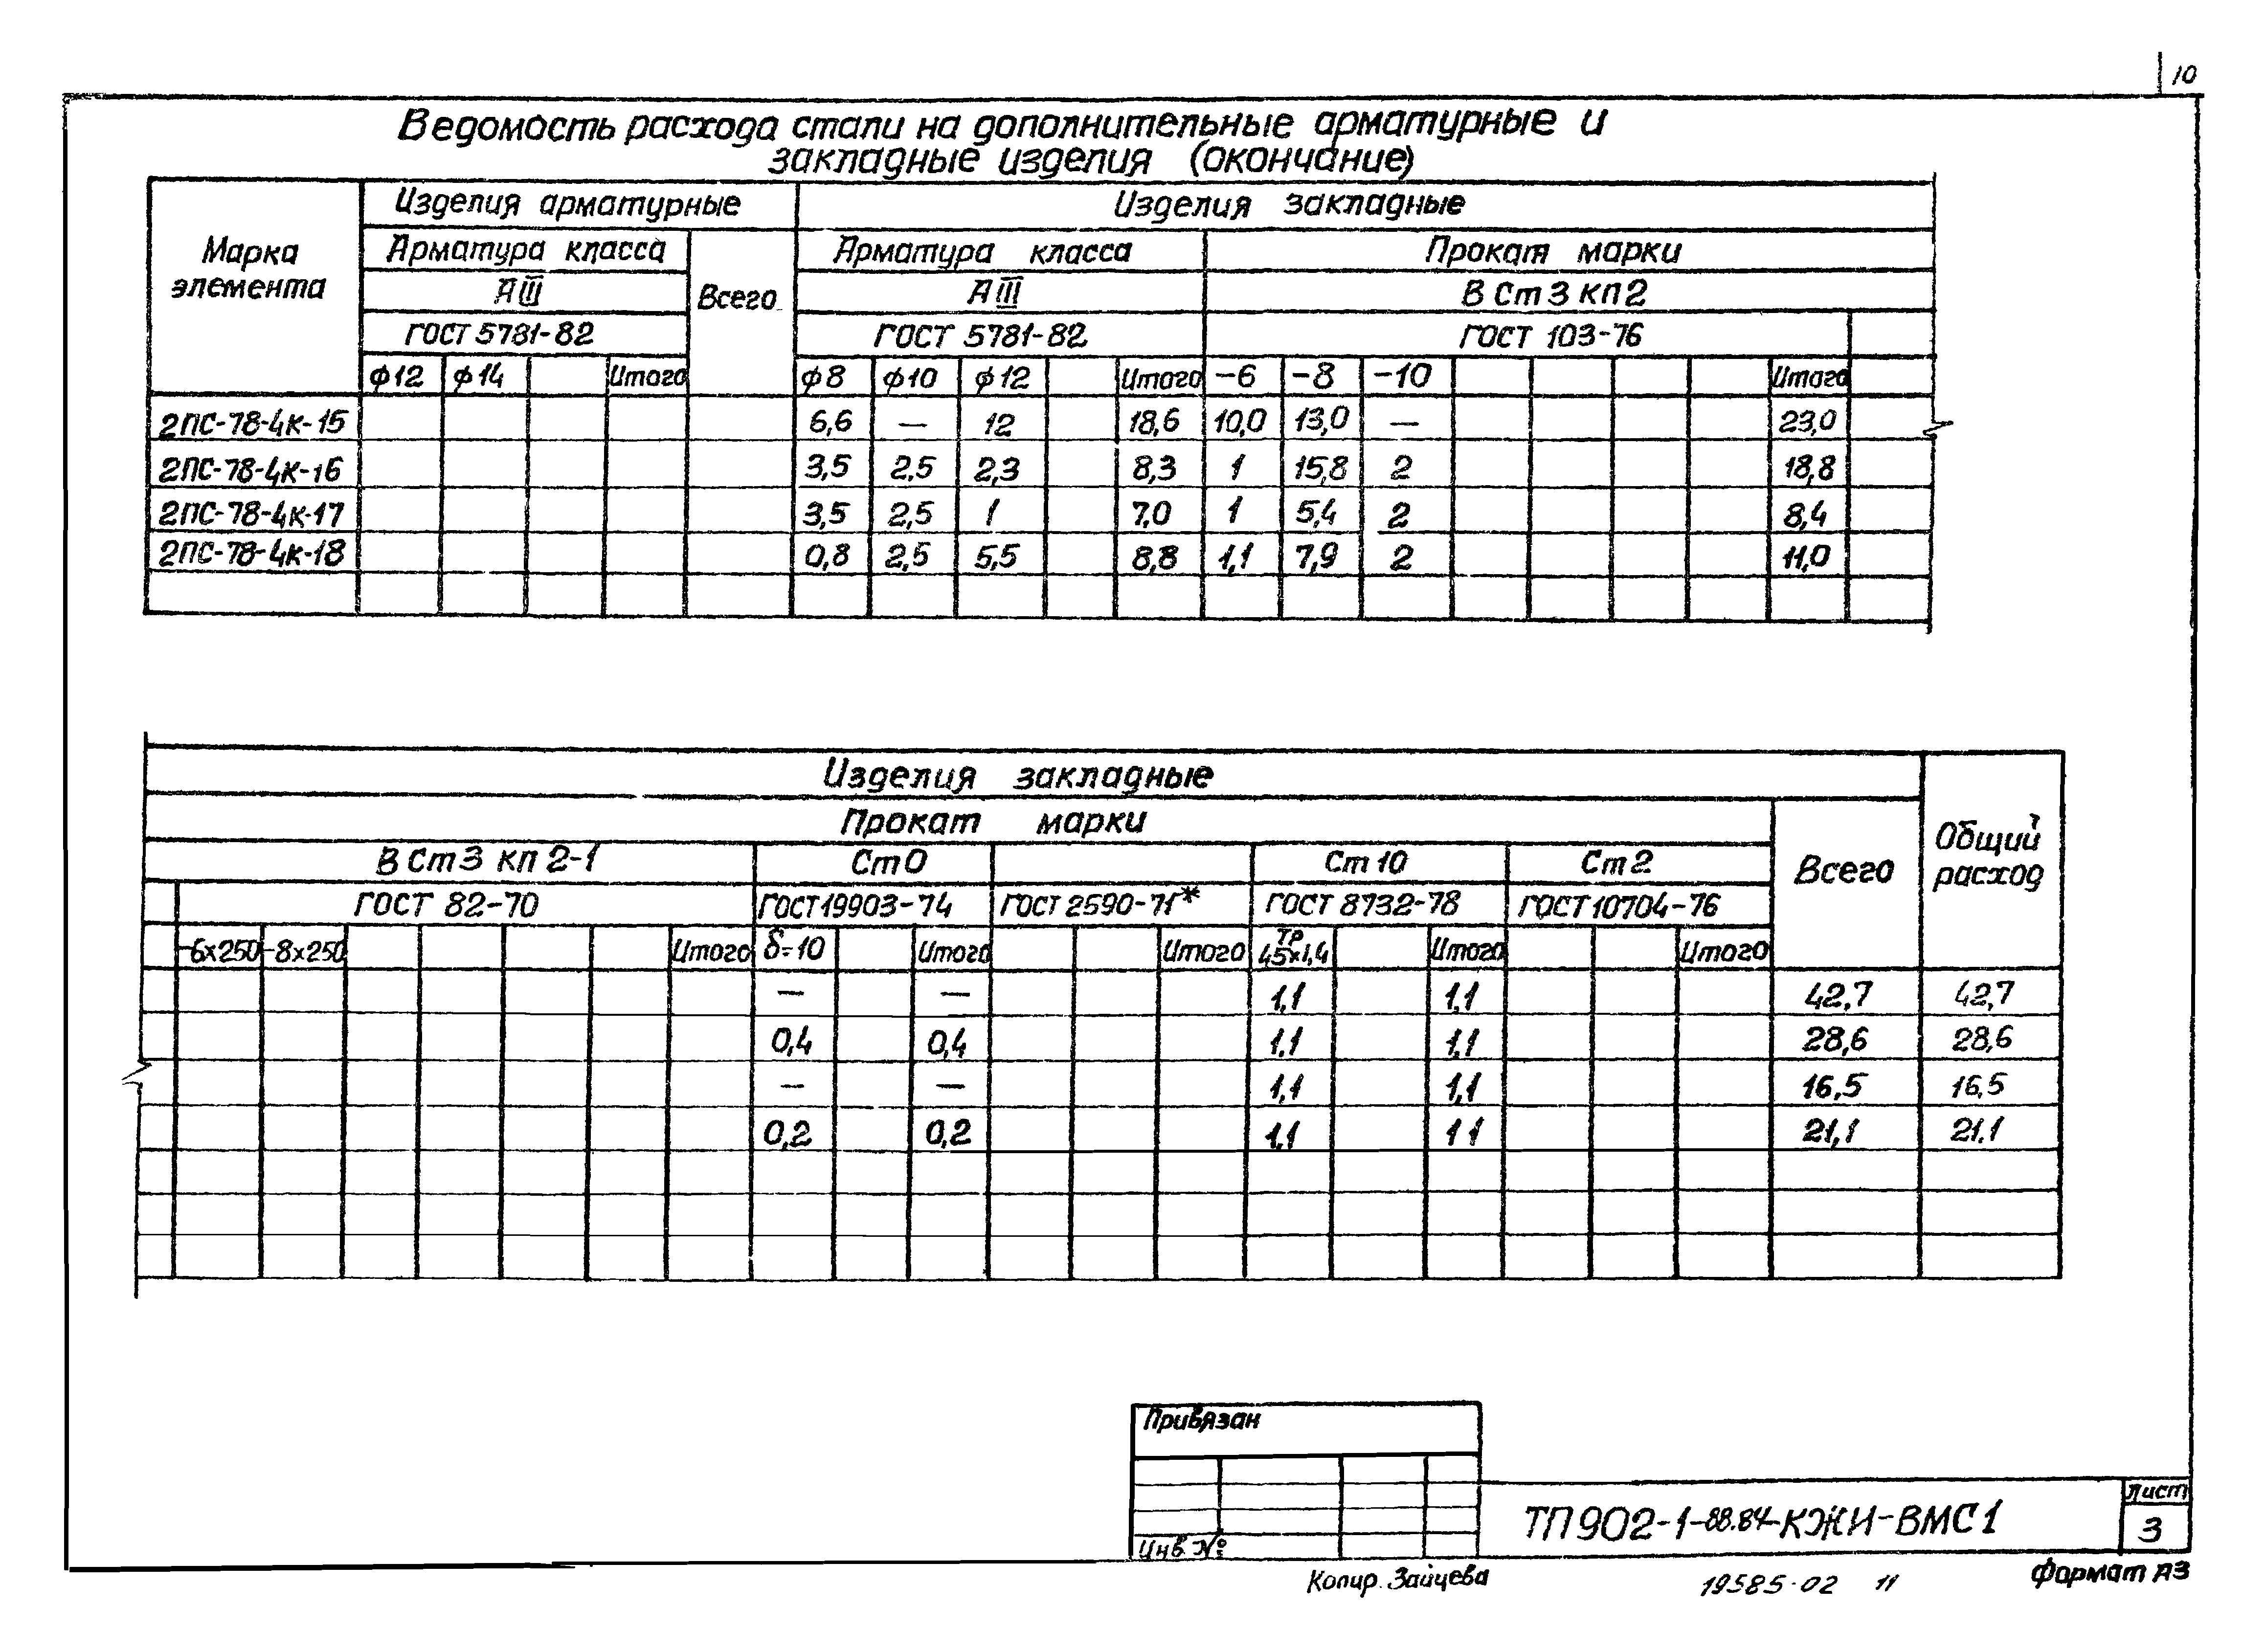 10
Ведомость расхода стали на дополнительные арматурные и
закладные изделия (окончание)
Марка элемента
Изделия арматурные
Изделия закладные
Арматура класса
Всего
Арматура класса
Прокат марки
АIII
АIII
ВСт3кп2
ГОСТ 5781-82
ГОСТ 5781-82
ГОСТ 103-76
ф12 ф14 Итого ф8 ф10 ф12 Итого -6 -8 -10 Итого
2ПС-78-4к-15 6,6 — 12 18,6 10,0 13,0 — 23,0
2ПС-78-4к-16 3,5 2,5 2,3 8,3 1 15,8 2 18,8
2ПС-78-4к-17 3,5 2,5 1 7,0 1 5,4 2 8,4
2ПС-78-4к-18 0,8 2,5 5,5 8,8 1,1 7,9 2 11,0
Изделия закладные
Общий расход
Прокат марки
Всего
ВСт3 кп2-1 Ст0 Ст10 Ст2
ГОСТ 82-70 ГОСТ19903-74 ГОСТ2590-71* ГОСТ 8732-78 ГОСТ10704-76
-6х250 -8х250 Итого δ=10 Итого Итого ТР 45х1,4 Итого Итого
— — 1,1 1,1 42,7 42,7
0,4 0,4 1,1 1,1 28,6 28,6
— — 1,1 1,1 16,5 16,5
0,2 0,2 1,1 1 1 21,1 21,1
Привязан
Инв.№
ТП902-1-88.84-КЖИ-ВМС1
Лист
3
Копир. Зайцева
19585-02 11
Формат А3